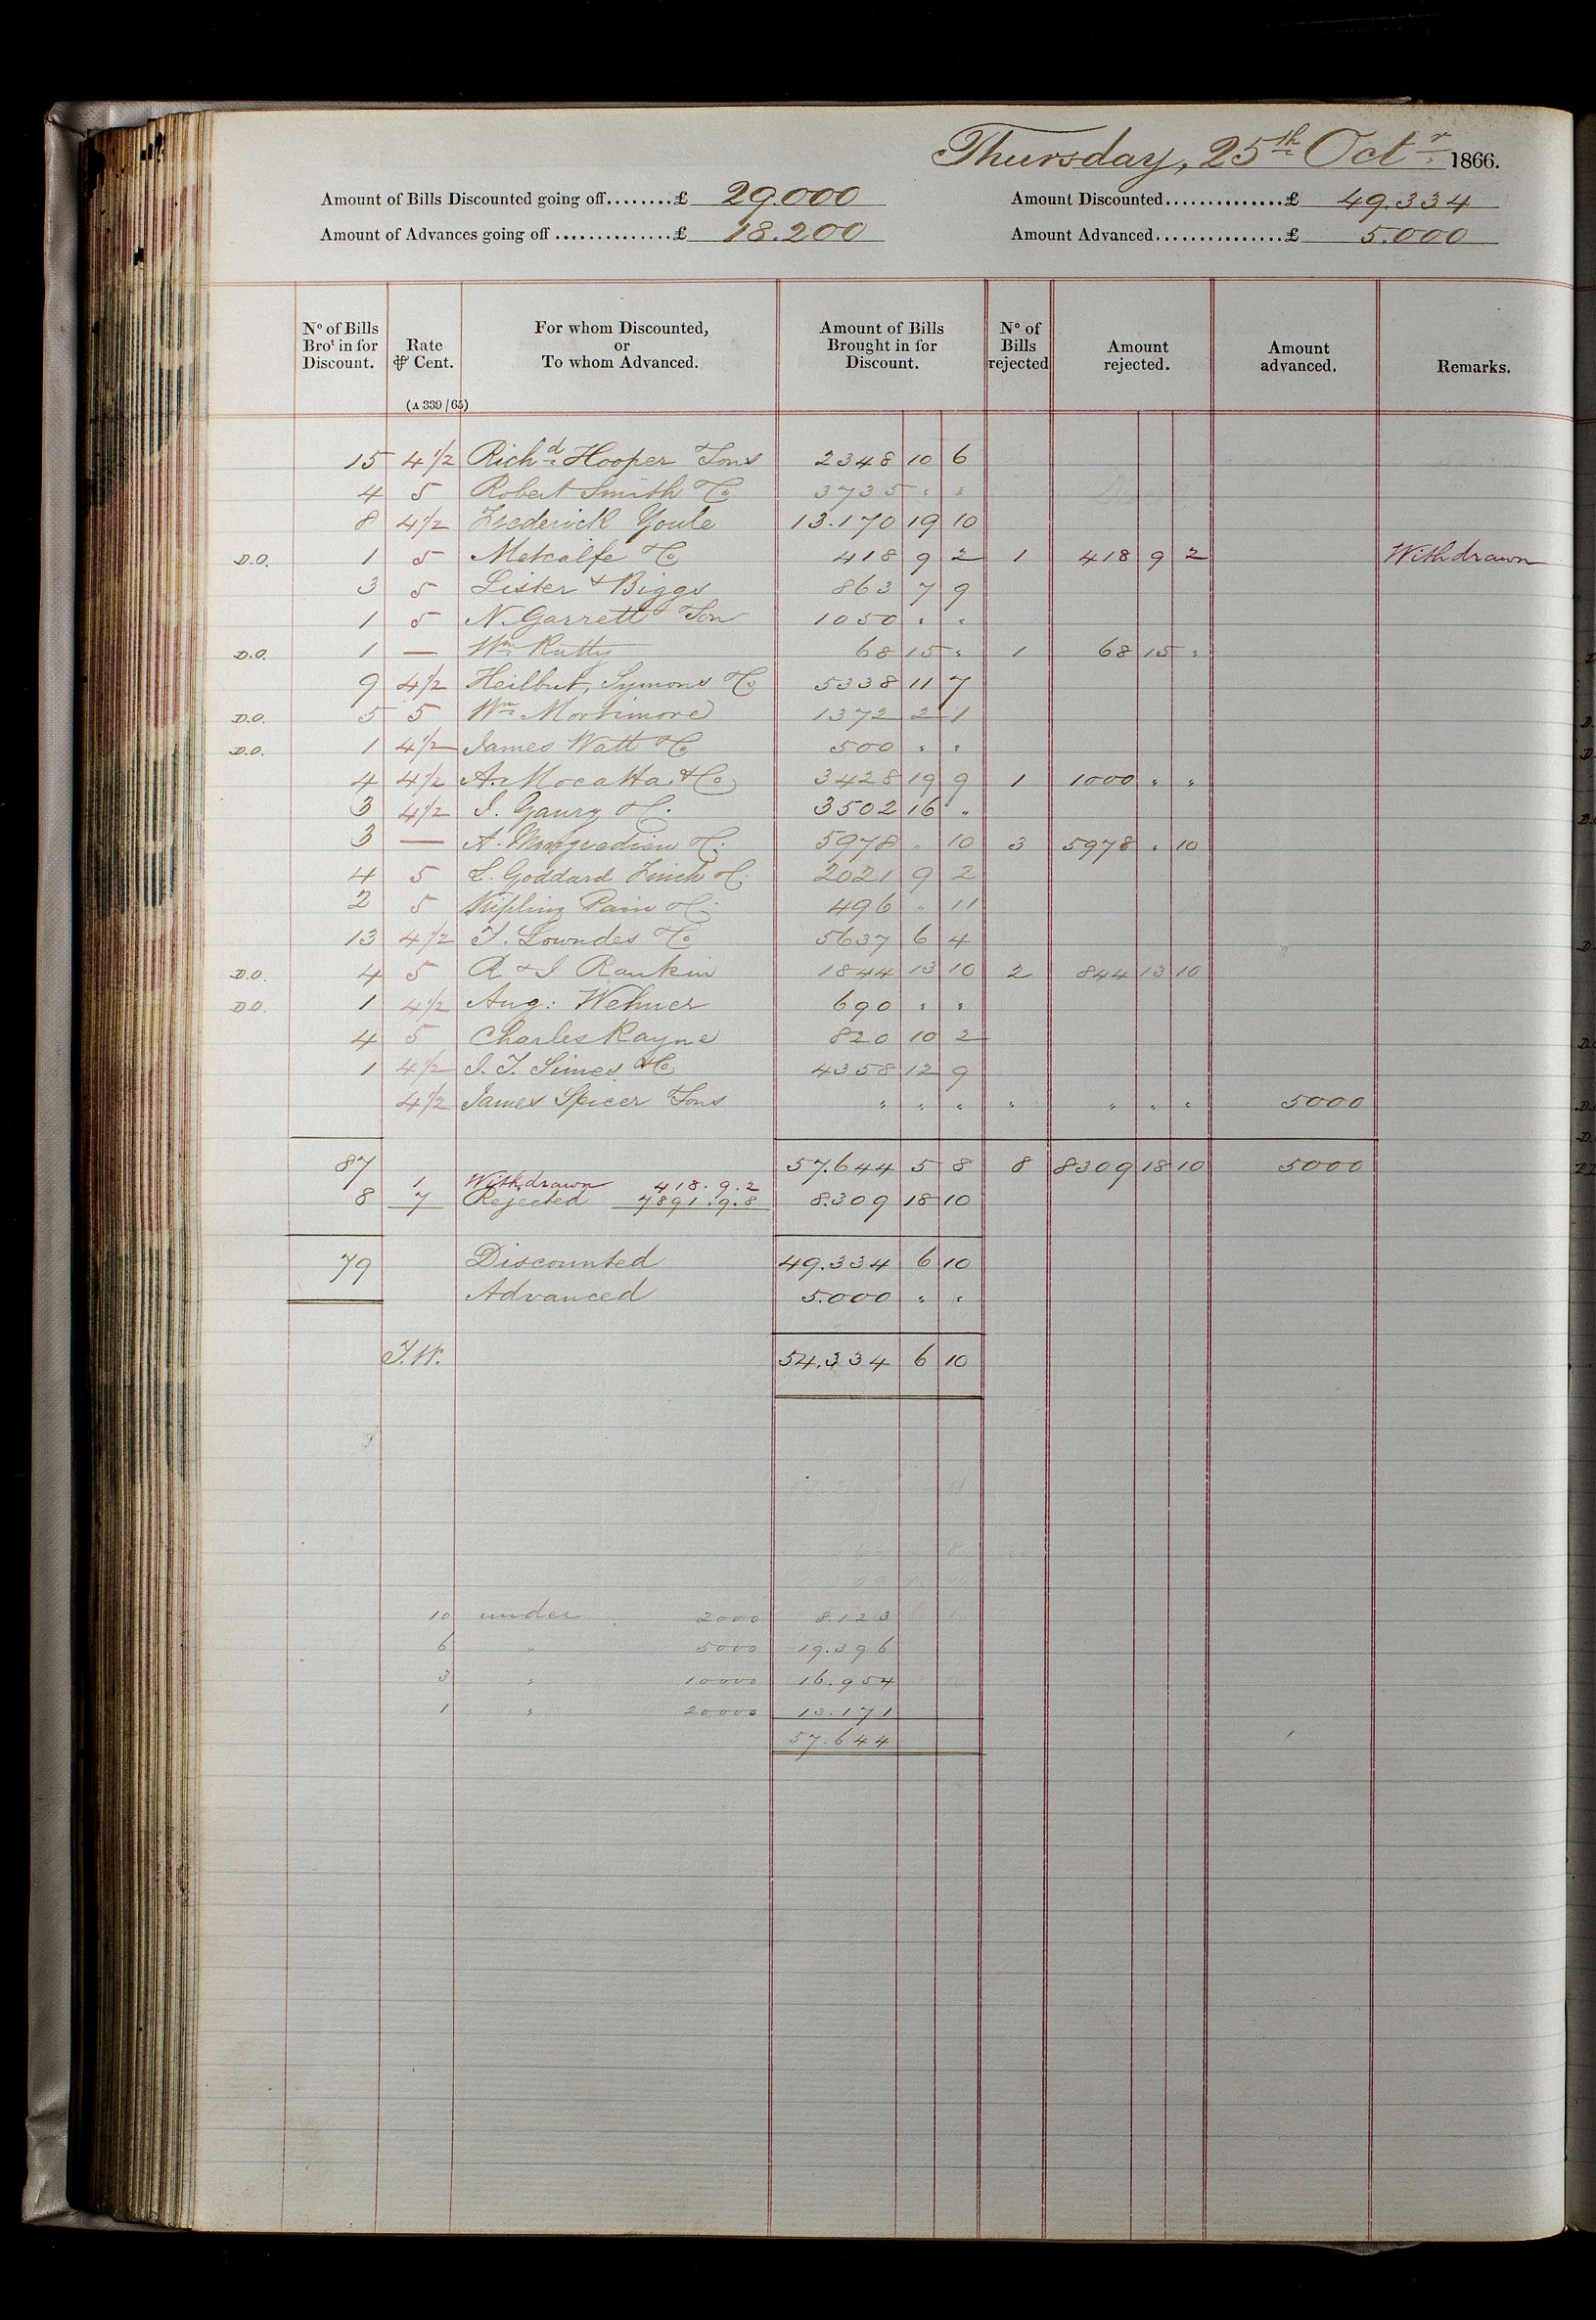 Thursday, 25th Octr 1866.
Amount of Bills Discounted going off........£ 29.000 Amount Discounted..............£ 49.334
Amount of Advances going off ..............£ 18.200 Amount Advanced...............£ 5.000
No of Bills Brot in for Discount. Rate ⅌ Cent. For whom Discounted, or To whom Advanced. Amount of Bills Brought in for Discount. No of Bills rejected Amount rejected. Amount advanced. Remarks.
(A 339/65)
15 4 1/2 Richd Hooper Sons 2348 10 6
4 5 Robert Smith & Co 3735 " "
8 4 1/2 Frederick Youle 13.170 19 10
D.O. 1 5 Metcalfe & Co 418 9 2 1 418 9 2 Withdrawn
3 5 Lister & Biggs 863 7 9
1 5 N. Garrett Son 1050 " "
D.O. 1 — Wm Rutty 68 15 " 1 68 15 "
9 4 1/2 Heilbut, Symons & Co 5338 11 7
D.O. 5 5 Wm Mortimore 1372 2 1
D.O. 1 4 1/2 James Watt & Co 500 " "
4 4 1/2 A. Mocatta & Co 3428 19 9 1 1000 " "
3 4 1/2 & Co 3502 16 "
3 — A. & Co 5978 " 10 3 5978 " 10
4 5 Goddard Finch & Co 2021 9 2
2 5 Kipling Pain & Co 496 " 11
13 4 1/2 T. Lowndes & Co 5637 6 4
D.O. 4 5 R & J Rankin 1844 13 10 2 844 13 10
D.O. 1 4 1/2 Aug: Wehner 690 " "
4 5 Charles Rayne 820 10 2
1 4 1/2 J. T. Simes & Co 4358 12 9
4 1/2 James Spicer Sons " " " " " " " 5000
87 57.644 5 8 8 8309 18 10 5000
1 Withdrawn 418.9.2
8 7 Rejected 7891.9.8 8.309 18 10
79 Discounted 49.334 6 10
Advanced 5.000 " "
T.W. 54.334 6 10
10 under 2000 8.123
6 " 5000 19.396
3 " 10000 16.954
1 " 20000 13.171
57.644